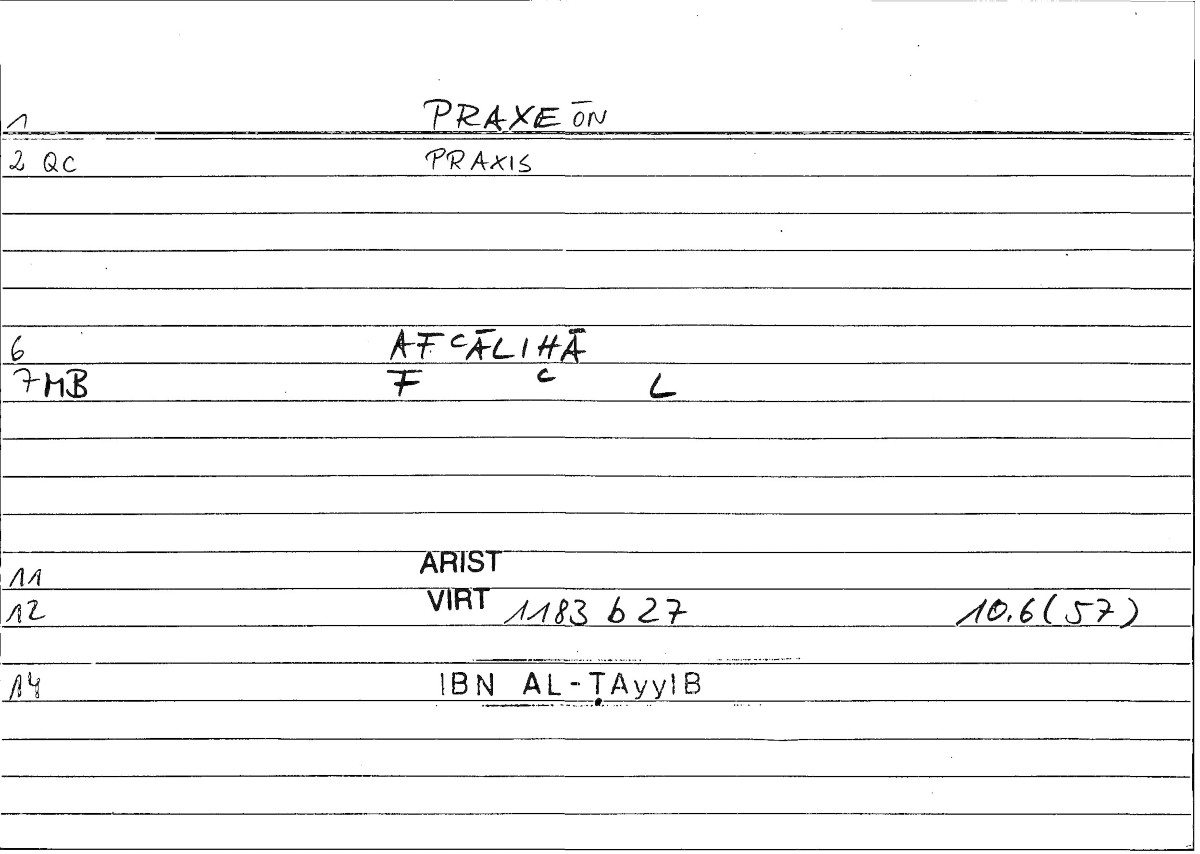 1 PRAXEŌN
2 QC PRAXIS
6 AFʿĀLIHĀ
7 MB F ʿ L
11 ARIST
12 VIRT 1183 b 27 10.6 (57)
14 IBN AL-ṬAyyIB